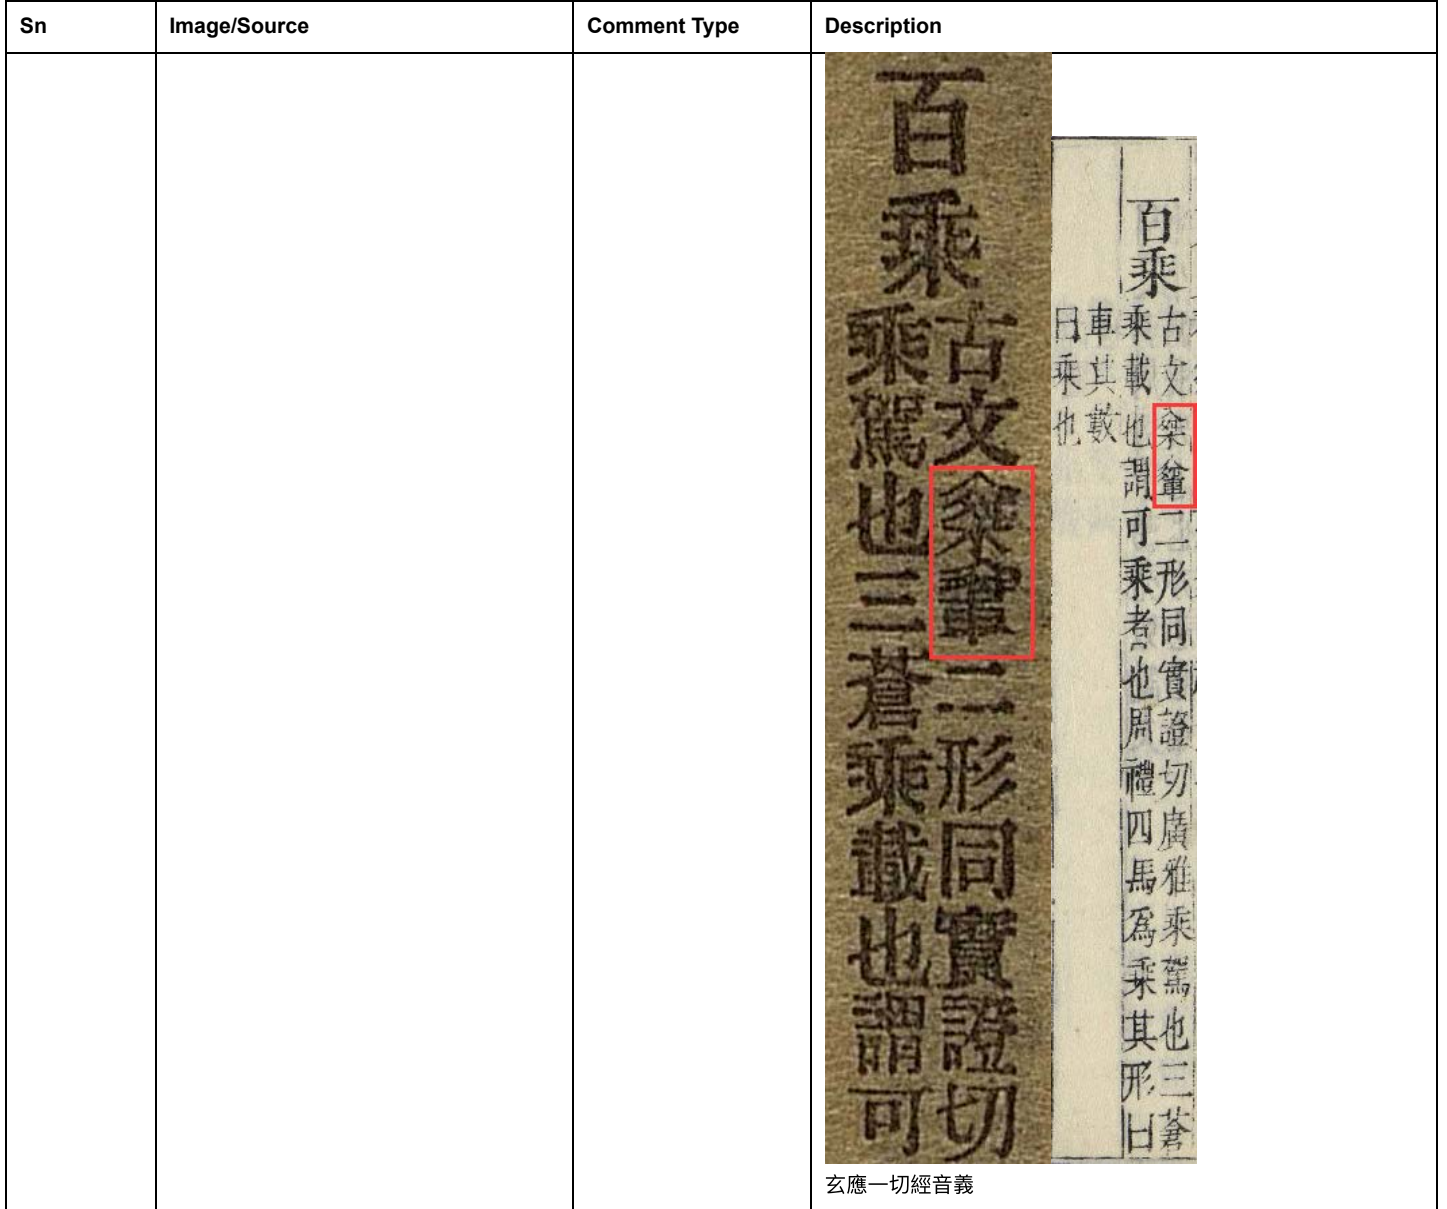 Sn Image/Source Comment Type Description
百乘
古文二形同實證切
乘駕也三蒼乘載也謂可
百乘
古文二形同實證切廣雅乘駕也三蒼
乘載也謂可乘者也周禮四馬爲乘其形曰
車其數
曰乘也
玄應一切經音義